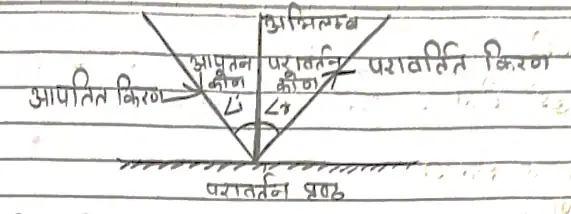 अभिलम्ब
आपतन परावर्तन
कोण कोण
आपतित किरण परावर्तित किरण
∠i ∠r
परावर्तन पृष्ठ